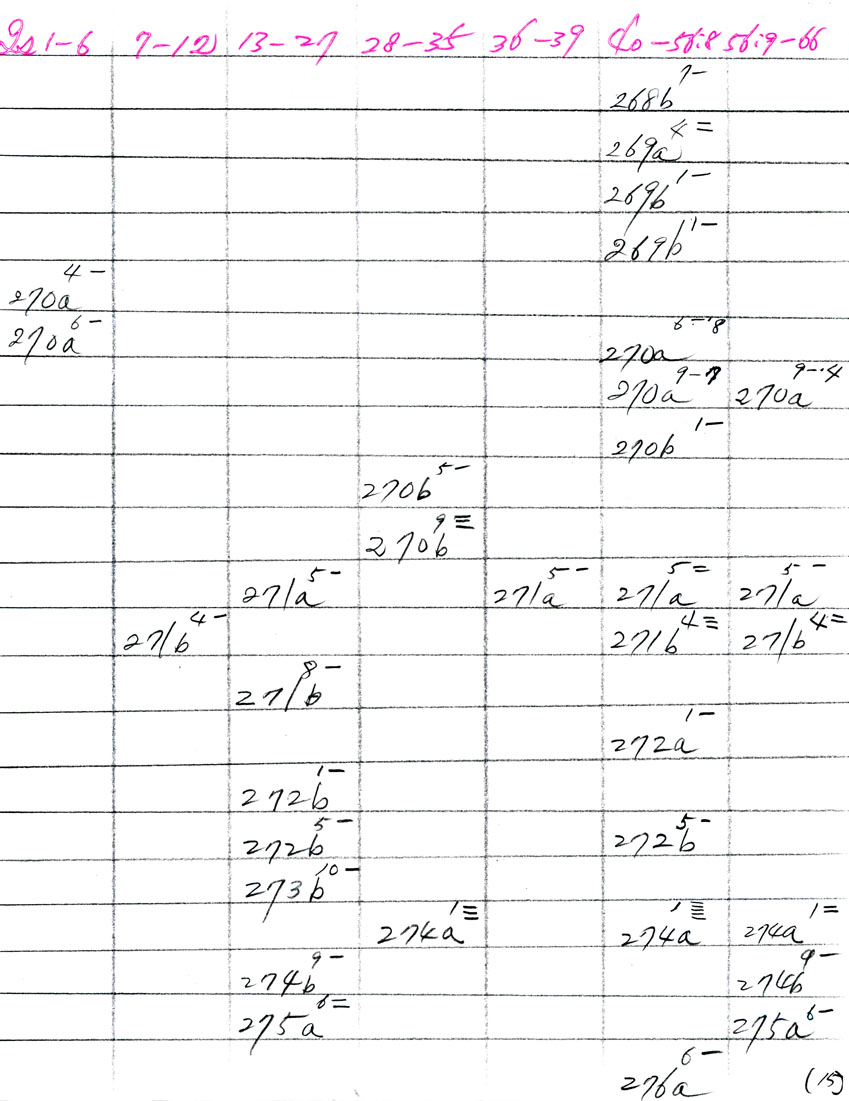 Is 1-6 7-12 13-27 28-35 36-39 40-56:8 56:9-66
268b 1-
269a 4=
269b 1-
269b 11-
270a 4-
270a 6- 270a 6-'8
270a 9- 270a 9-·4
270b 1-
270b 5-
270b 9≡
271a 5- 271a 5- 271a 5= 271a 5-
271b 4- 271b 4≡ 271b 4=
271b 8-
272a 1-
272b 1-
272b 5- 272b 5-
273b 10-
274a 1≡ 274a 1≣ 274a 1=
274b 9- 274b 9-
275a 6= 275a 6-
276a 6- (15)